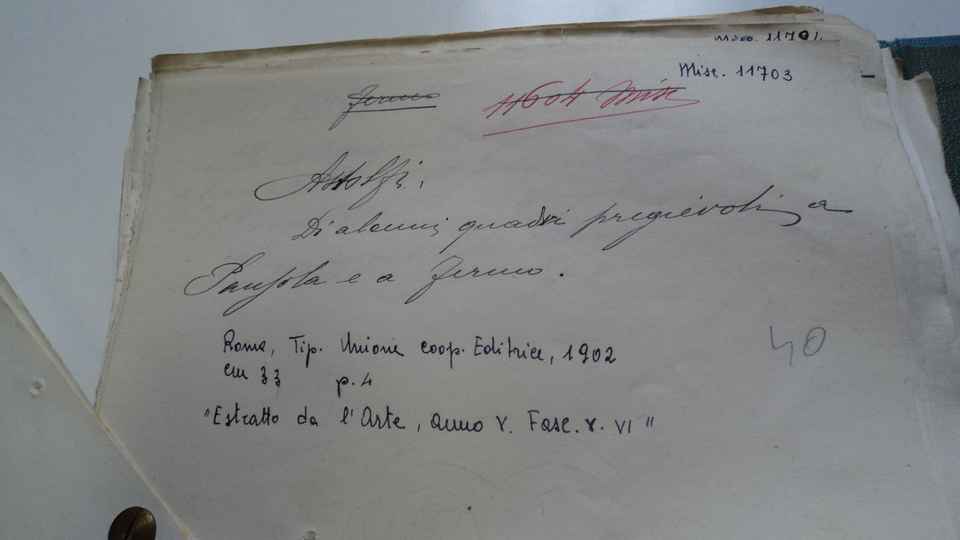 Misc. 11701.
Misc. 11703
Fermo
11604 Misc
Astolfi,
Di alcuni quadri pregievoli a
Pausola e a Fermo.
40
Roma, Tip. Unione coop. Editrice, 1902
cm 33 p. 4
"Estratto da l'Arte, Anno V. Fasc. V. VI"